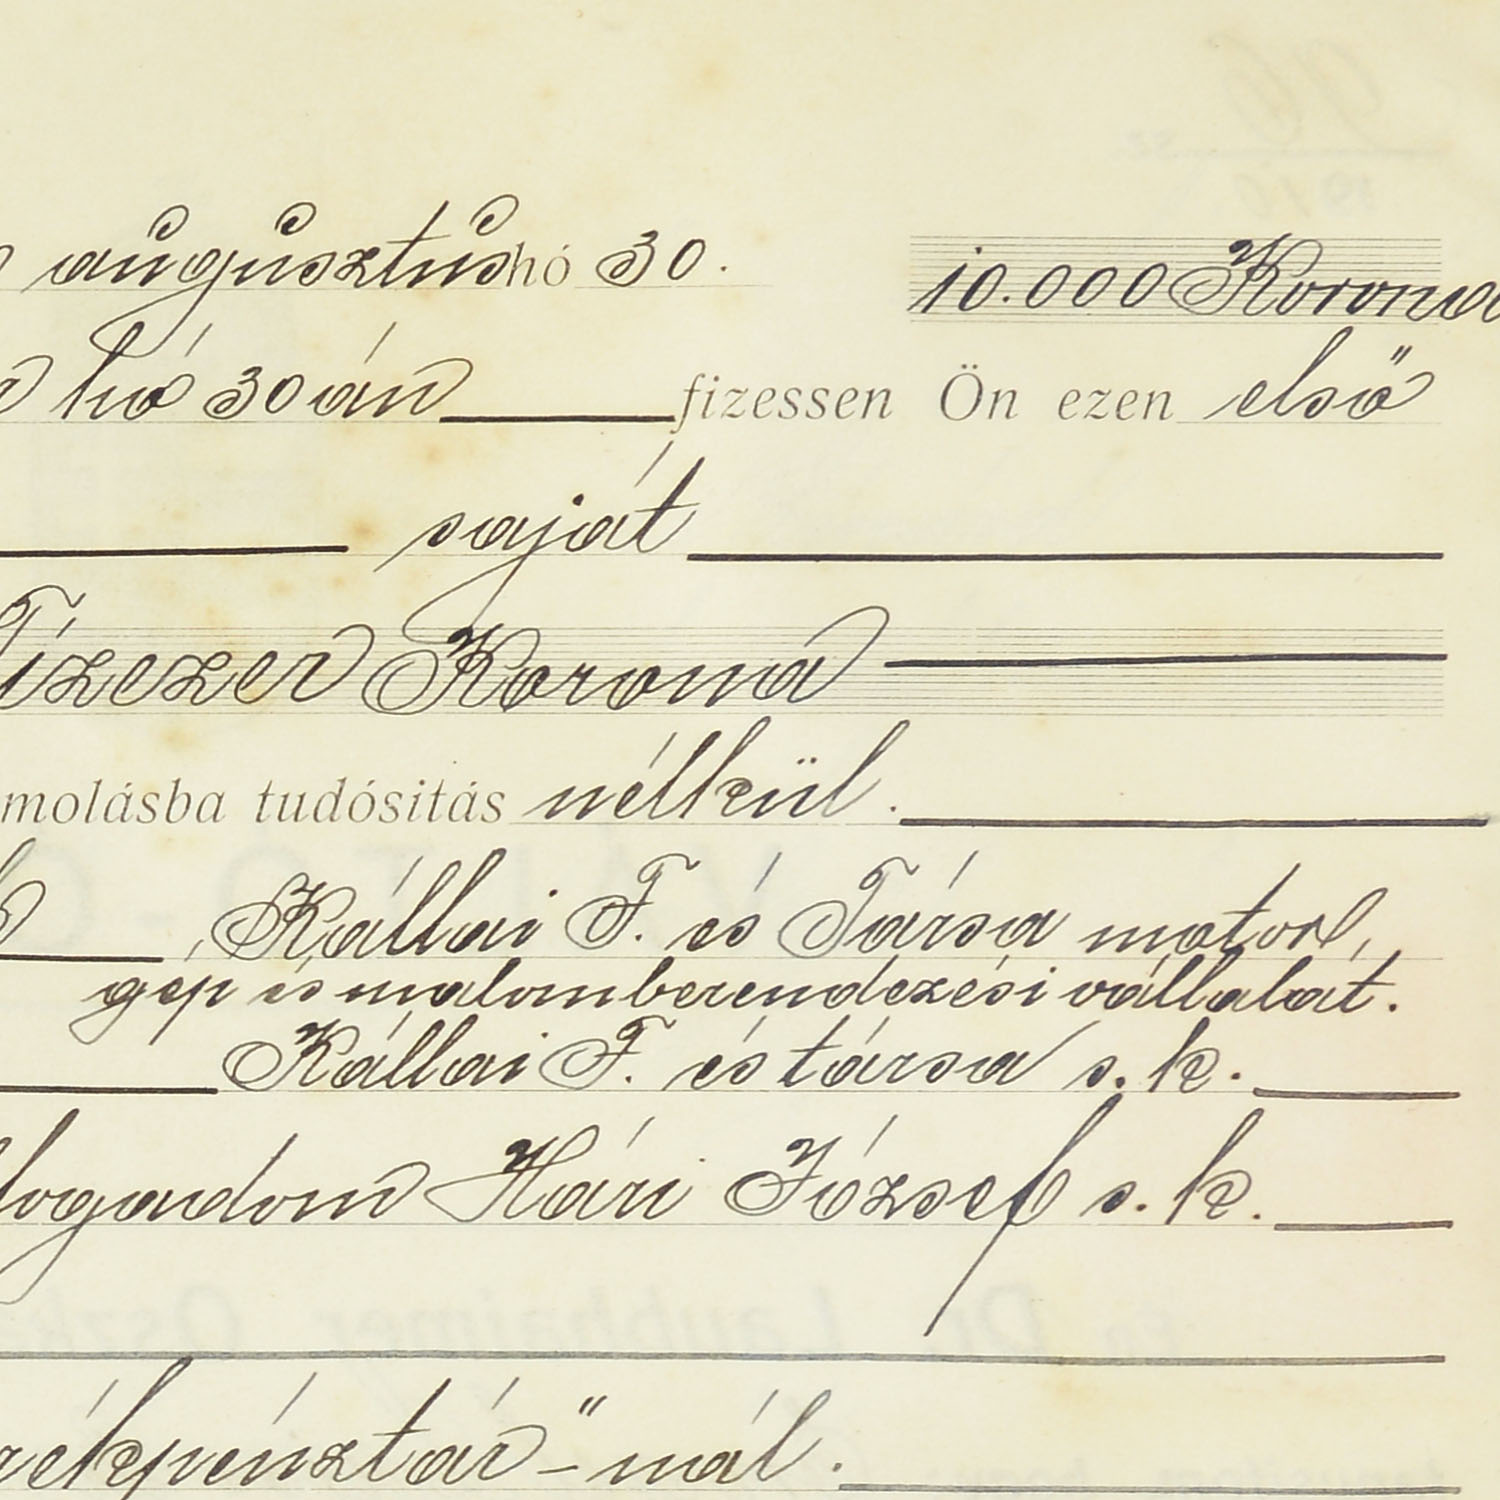 augusztus hó 30. 10.000 Korona
hó 30án fizessen Ön ezen első
saját
Tízezer Korona
molásba tudósitás nélkül.
Kállai F. és Társa motor,
gép és malomberendezési vállalat.
Kállai F. és társa s. k.
fogadom Hári József s. k.
rékpénztár"-nál.